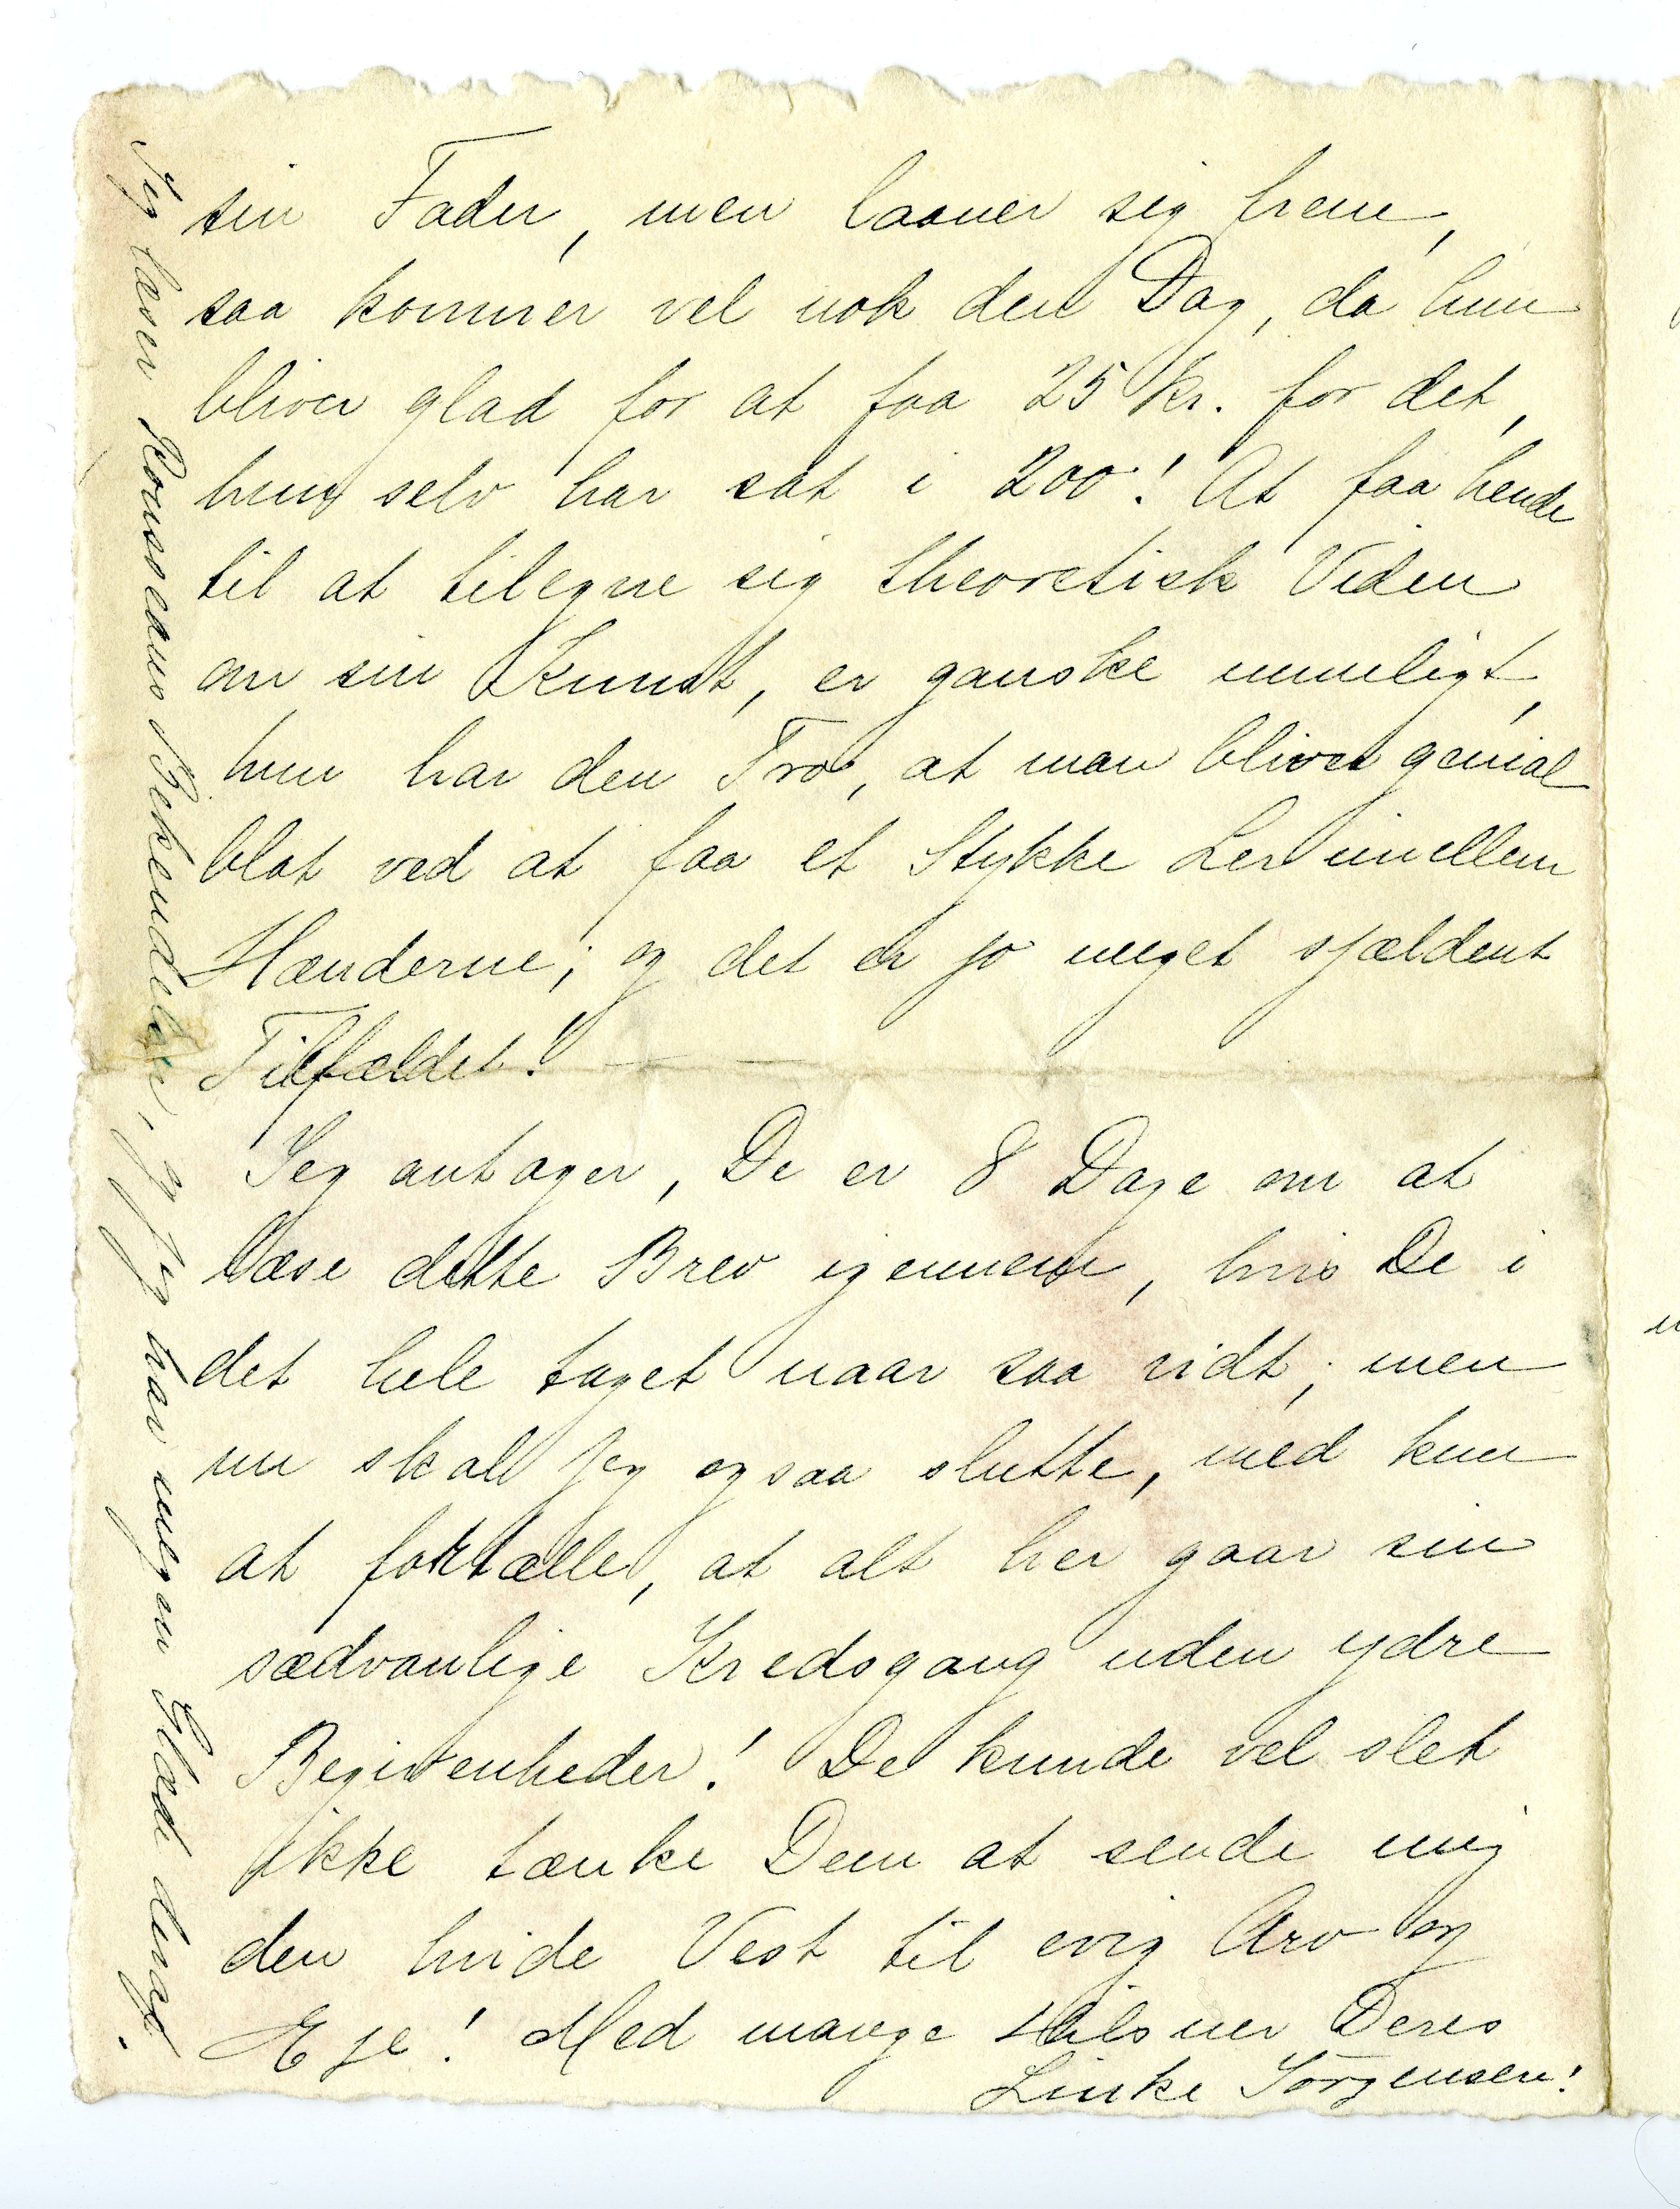 sin Fader, men laaner sig frem,
saa kommer vel nok den Dag, da hun
bliver glad for at faa 25 Kr. for det,
hun selv har sat i 200! At faa hende
til at tilegne sig theoretisk Viden
om sin Kunst, er ganske umuligt,
hun har den Tro, at man bliver genial
blot ved at faa et Stykke Ler imellem
Hænderne; og det er jo meget sjældent
Tilfældet! — —
Jeg antager, De er 8 Dage om at
læse dette Brev igennem, hvis De i
det hele taget naar saa vidt; men
nu skal jeg ogsaa slutte, med kun
at fortælle, at alt her gaar sin
sædvanlige Kredsgang uden ydre
Begivenheder! De kunde vel slet
ikke tænke Dem at sende mig
den hvide Vest til evig Arv og
Eje! Med mange Hilsner Deres
Linke Jørgensen!
Jeg læser Rousseaus Bekendelser, og jeg har megen Glæde deraf.